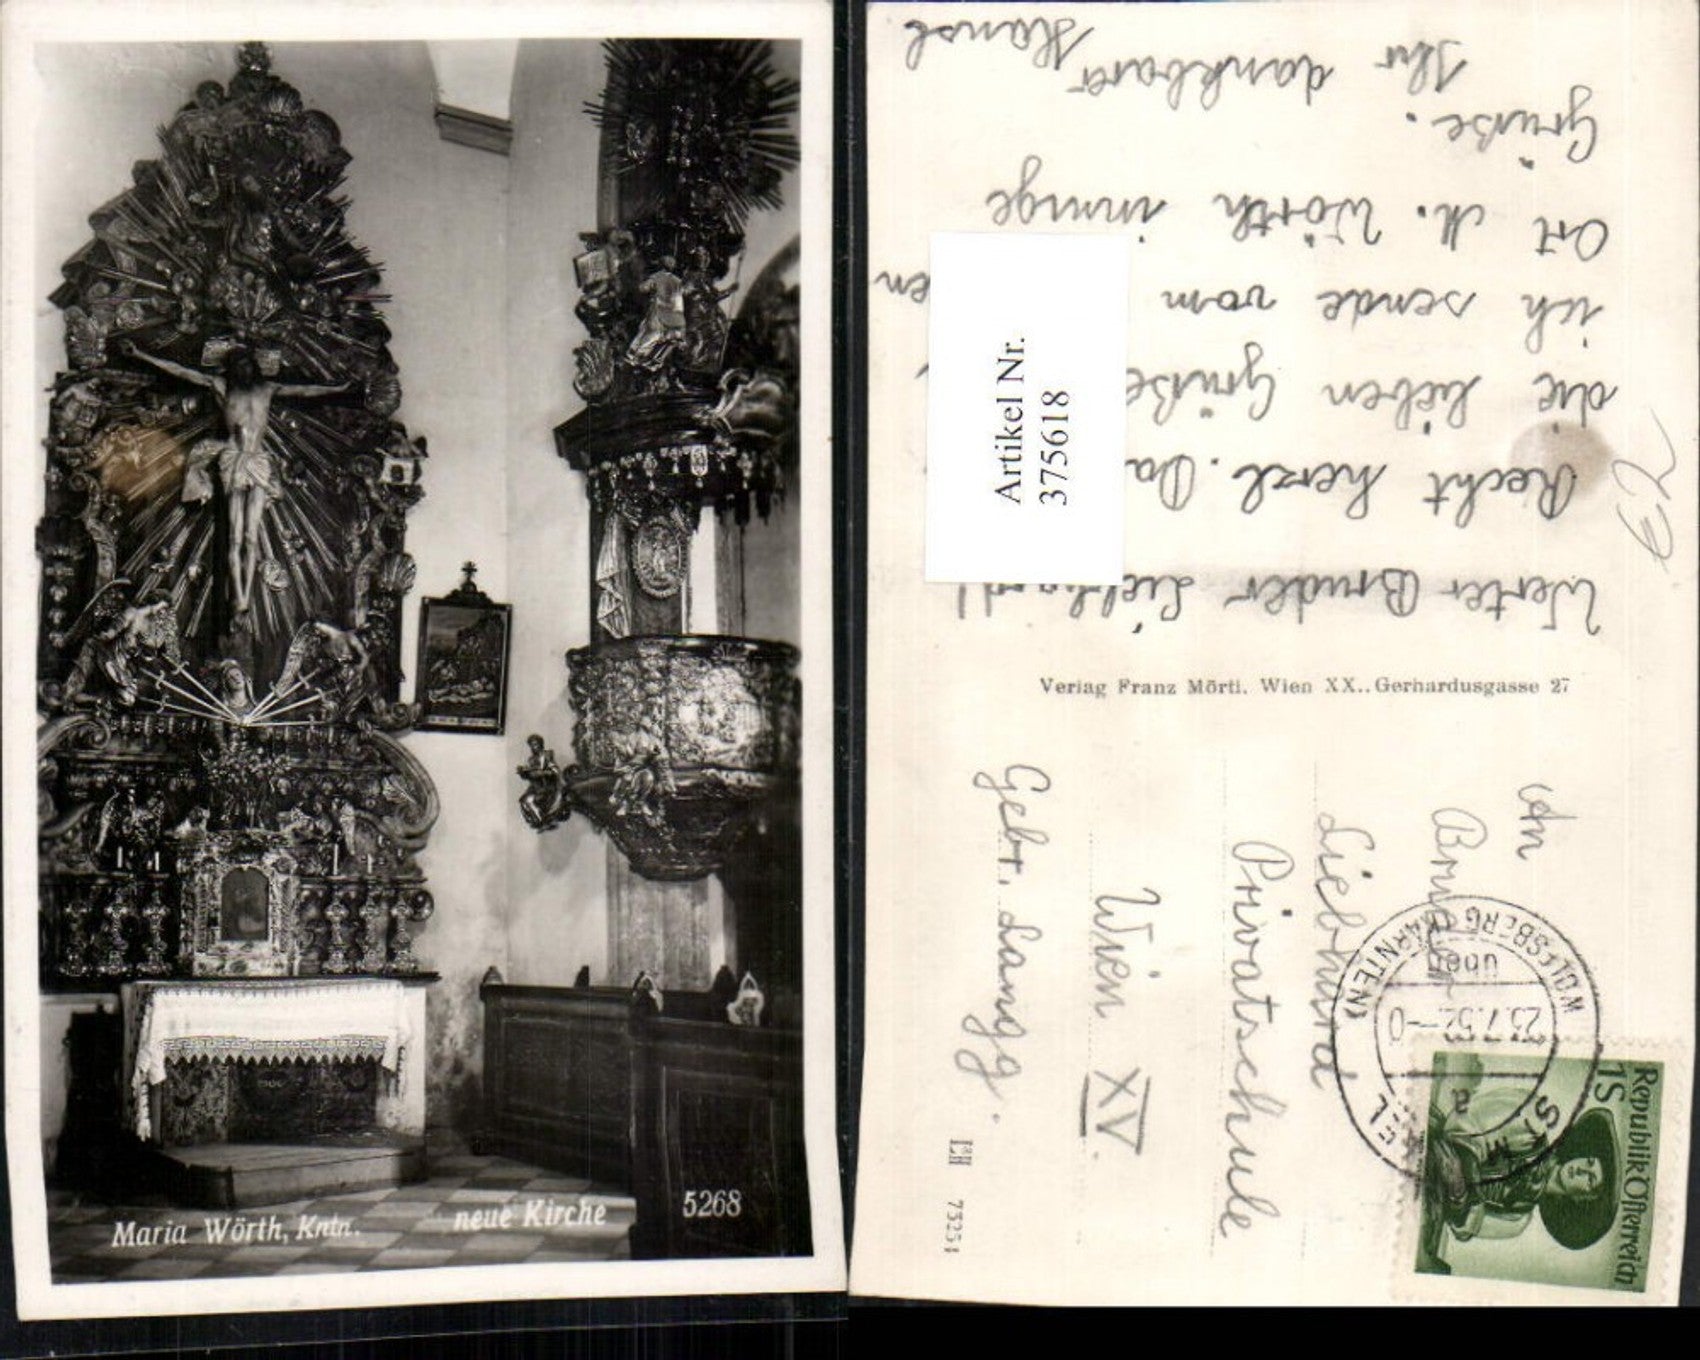 Maria Wörth, Kntn. neue Kirche 5268
Werter Bruder
Recht herzl. Da
die lieben Grüße
ich sende vom
Ort M. Wörth innige
Grüße.
Ihr dankbarer Hansl
E2
Artikel Nr.
375618
Verlag Franz Mörtl, Wien XX., Gerhardusgasse 27
An
Bruder
Liebhard
Privatschule
Wien XV.
Gebr. Langg.
L&H 73251
WOLFSBERG (KÄRNTEN)
über
23.7.52-0
a
ST. MICHAEL
Republik Österreich
1S